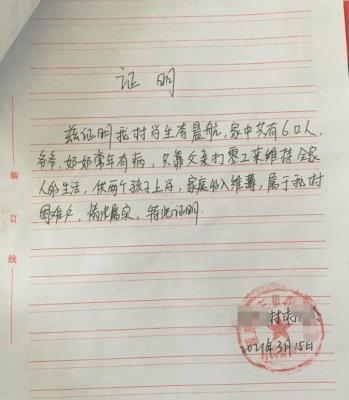 证明
兹证明我村学生李晨航，家中共有6口人，
爷爷、奶奶常年有病，只靠父亲打零工来维持全家
人的生活，供两个孩子上学，家庭收入维薄，属于我村
困难户，情况属实，特此证明.
村
2021年3月15日
装
订
线